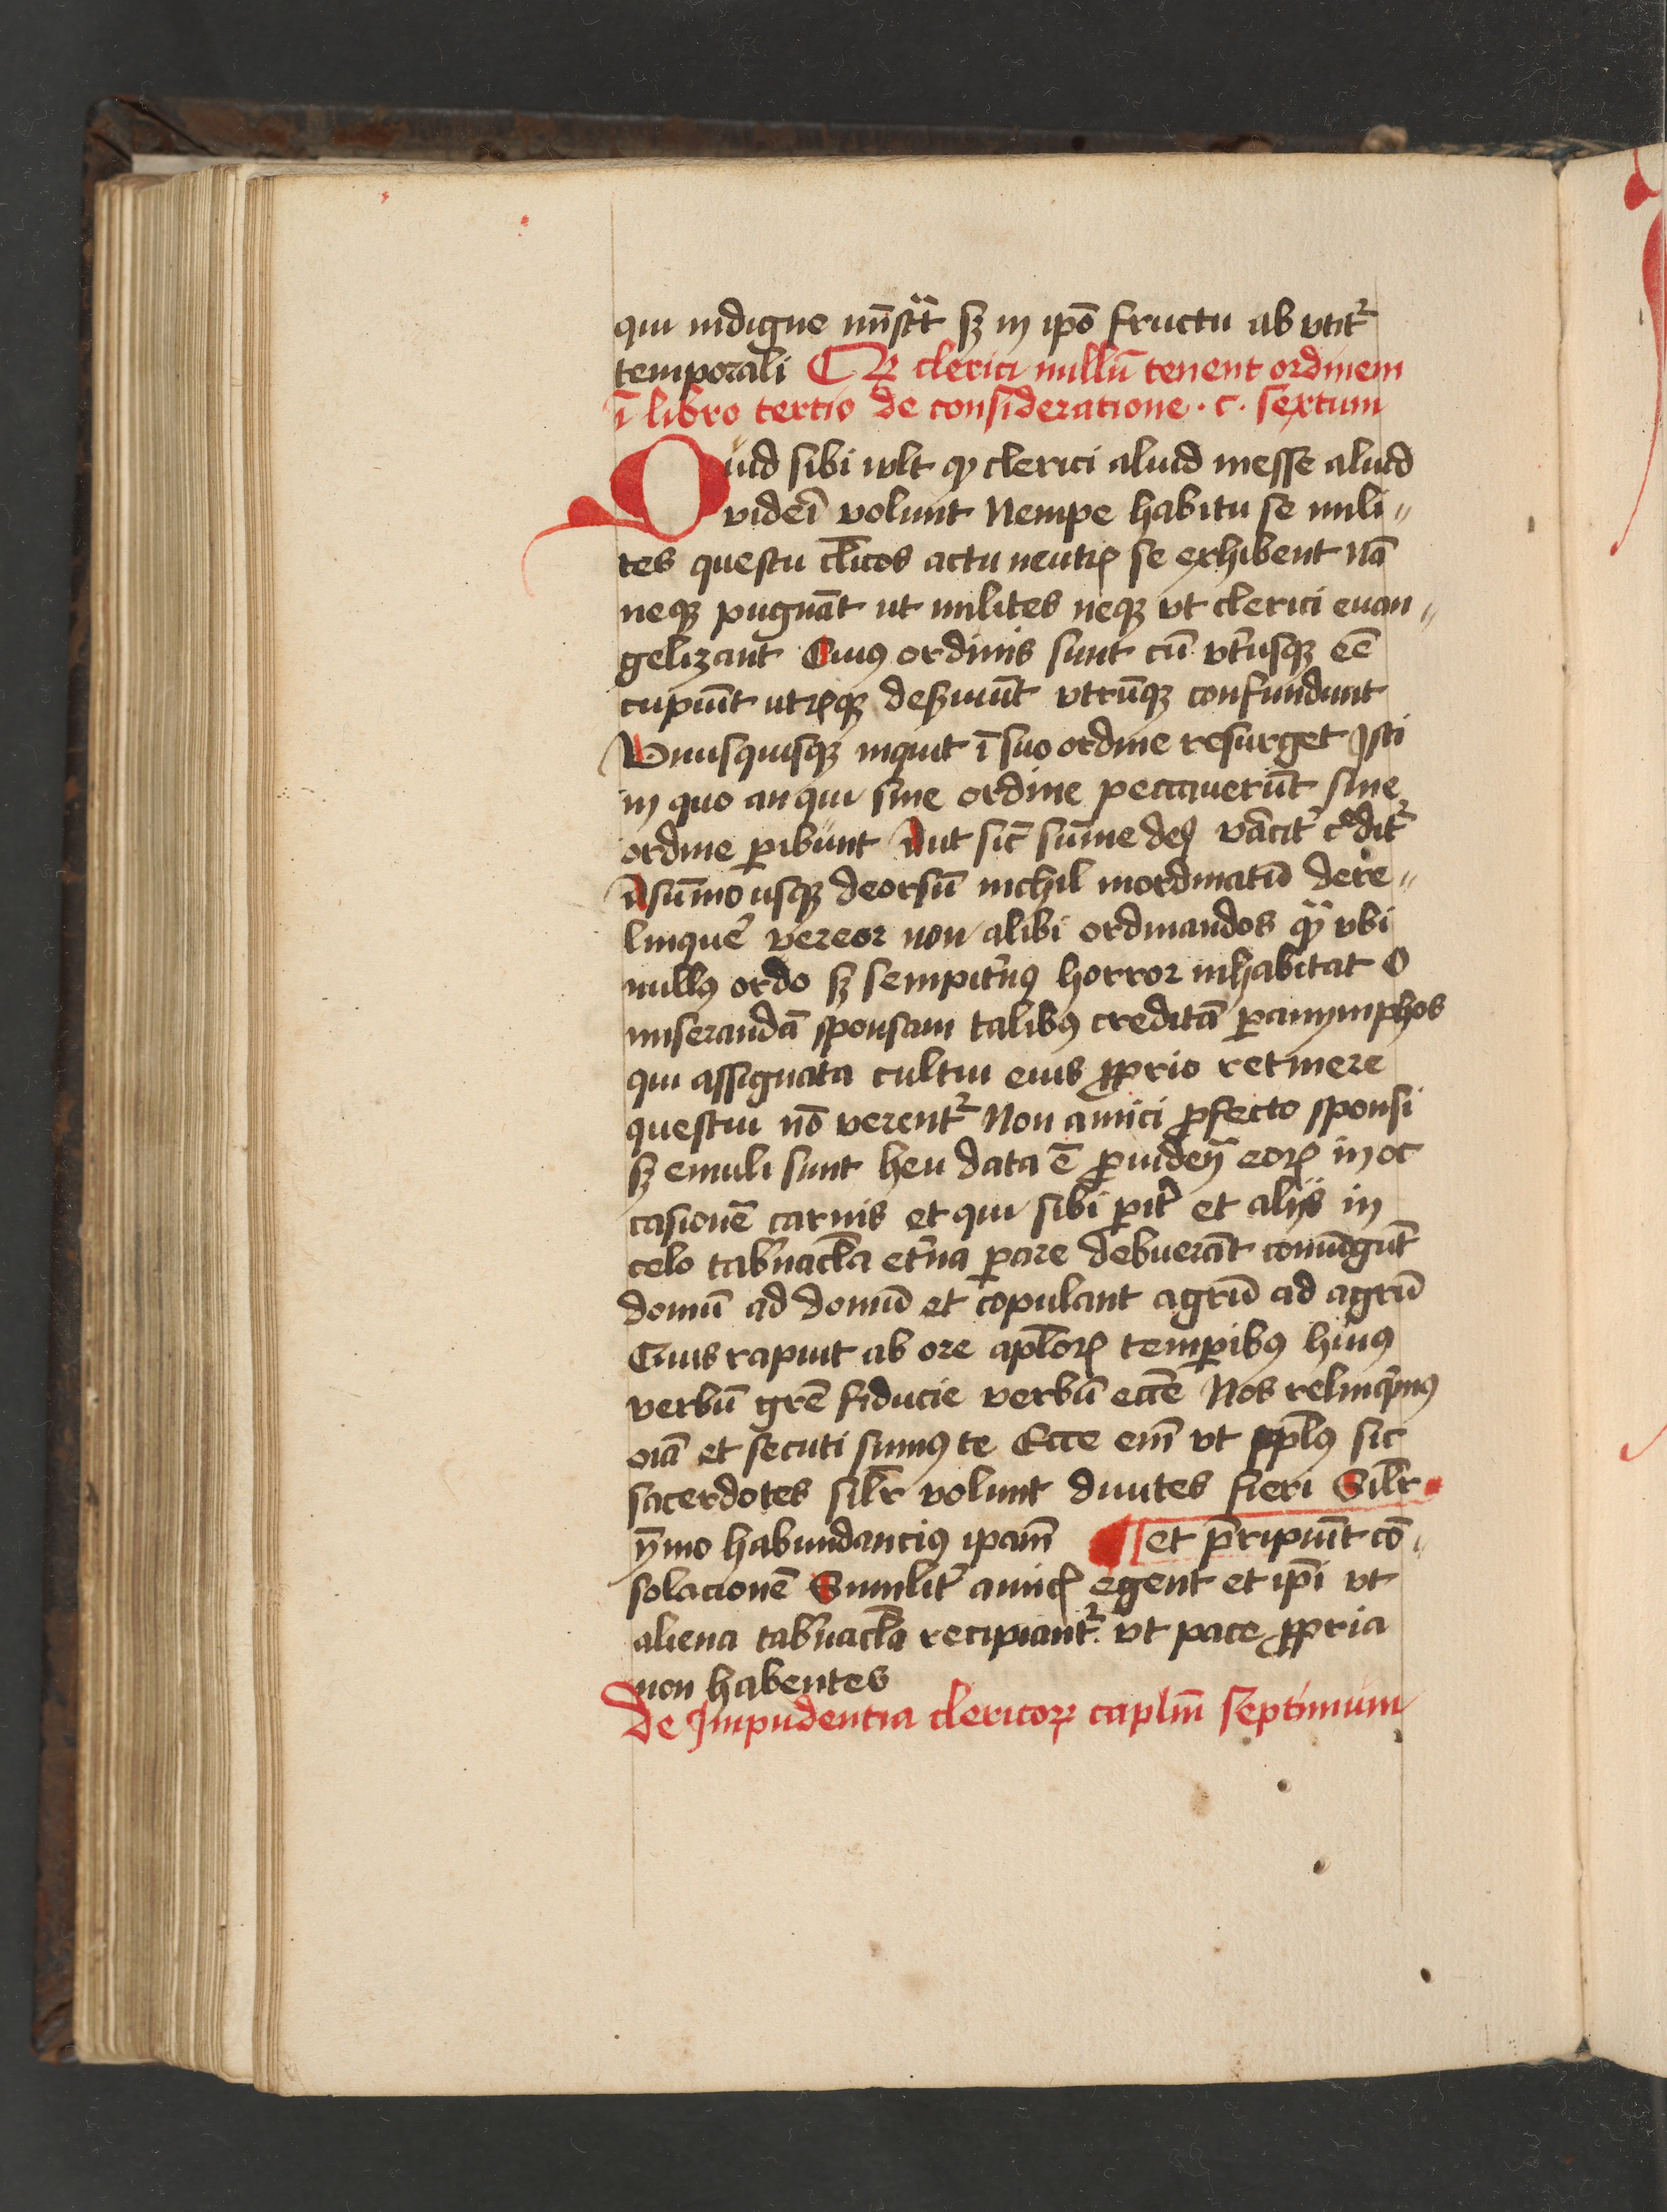 qui indigne mīstāt sꝫ in ipō fructu ab vtit᷑
temporali ¶ Qꝫ clerici nullū tenent ordinem
ī libro tertio de consideratione · c · sextum
Quid sibi wlt ꝙ clerici aliud inesse aliud
videri volunt Nempe habitu se mili⸗
tes questu clīcos actu neutꝝ se exhibent nā
neqꝫ pugnāt ut milites neqꝫ vt clerici euan⸗
gelizant Cuiꝰ ordinis sunt cū vtrͥusqꝫ eē
cupiūt utrūqꝫ desiuūt vtrūqꝫ confundunt
Vnusquisqꝫ inquit ī suo ordine resurget Isti
in quo an qui sine ordine peccauerūt sine
ordine ꝑibunt Aut si sūme deꝰ vāciť cͤdit᷑
A sūmo usqꝫ deorsū nichil inordinatū dere⸗
linquē vereor non alibi ordinandos ꝙ̄ vbi
nullꝰ ordo sꝫ sempit̄nꝰ horror inhabitat O
miserandā sponsam talibꝰ creditā ꝑanymphos
qui assignata cultui eius ꝓprio retinere
questui nō verent᷑ Non amici ꝓfecto sponsi
sꝫ emuli sunt heu data ē ꝓuiden̄ eoꝝ in oc
casionē carnis et qui sibi ꝑit̄ et alijs in
celo tab̄nacl̄a et̄na ꝑare debuerāt coniūgūt
domū ad domū et copulant agrū ad agrū
Cuius rapuit ab ore apl̄oꝝ temꝑibꝰ huiꝰ
verbū gr̄e fiducie verbū ecc̄e Nos relinq̄mꝰ
oīa et secuti sumꝰ te Ecce em̄ vt ppl̄ꝰ sic
sacerdotes silr̄ volunt diuites fieri Silr̄
ȳmo habundanciꝰ ipam̄ ¶ et p̄ripiūt cō⸗
solacionē Similit̄ amicꝝ egent et ip̄i vt
aliena tab̄nacl̄a recipiant᷑ vt pace ꝓpria
non habentes
De Impudentia clericoꝝ caplm̄ septimum